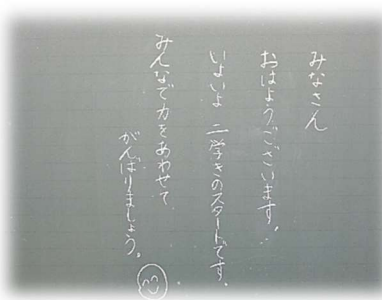 みなさん
おはようございます。
いよいよ 二学きのスタートです。
みんなで力をあわせて
がんばりましょう。